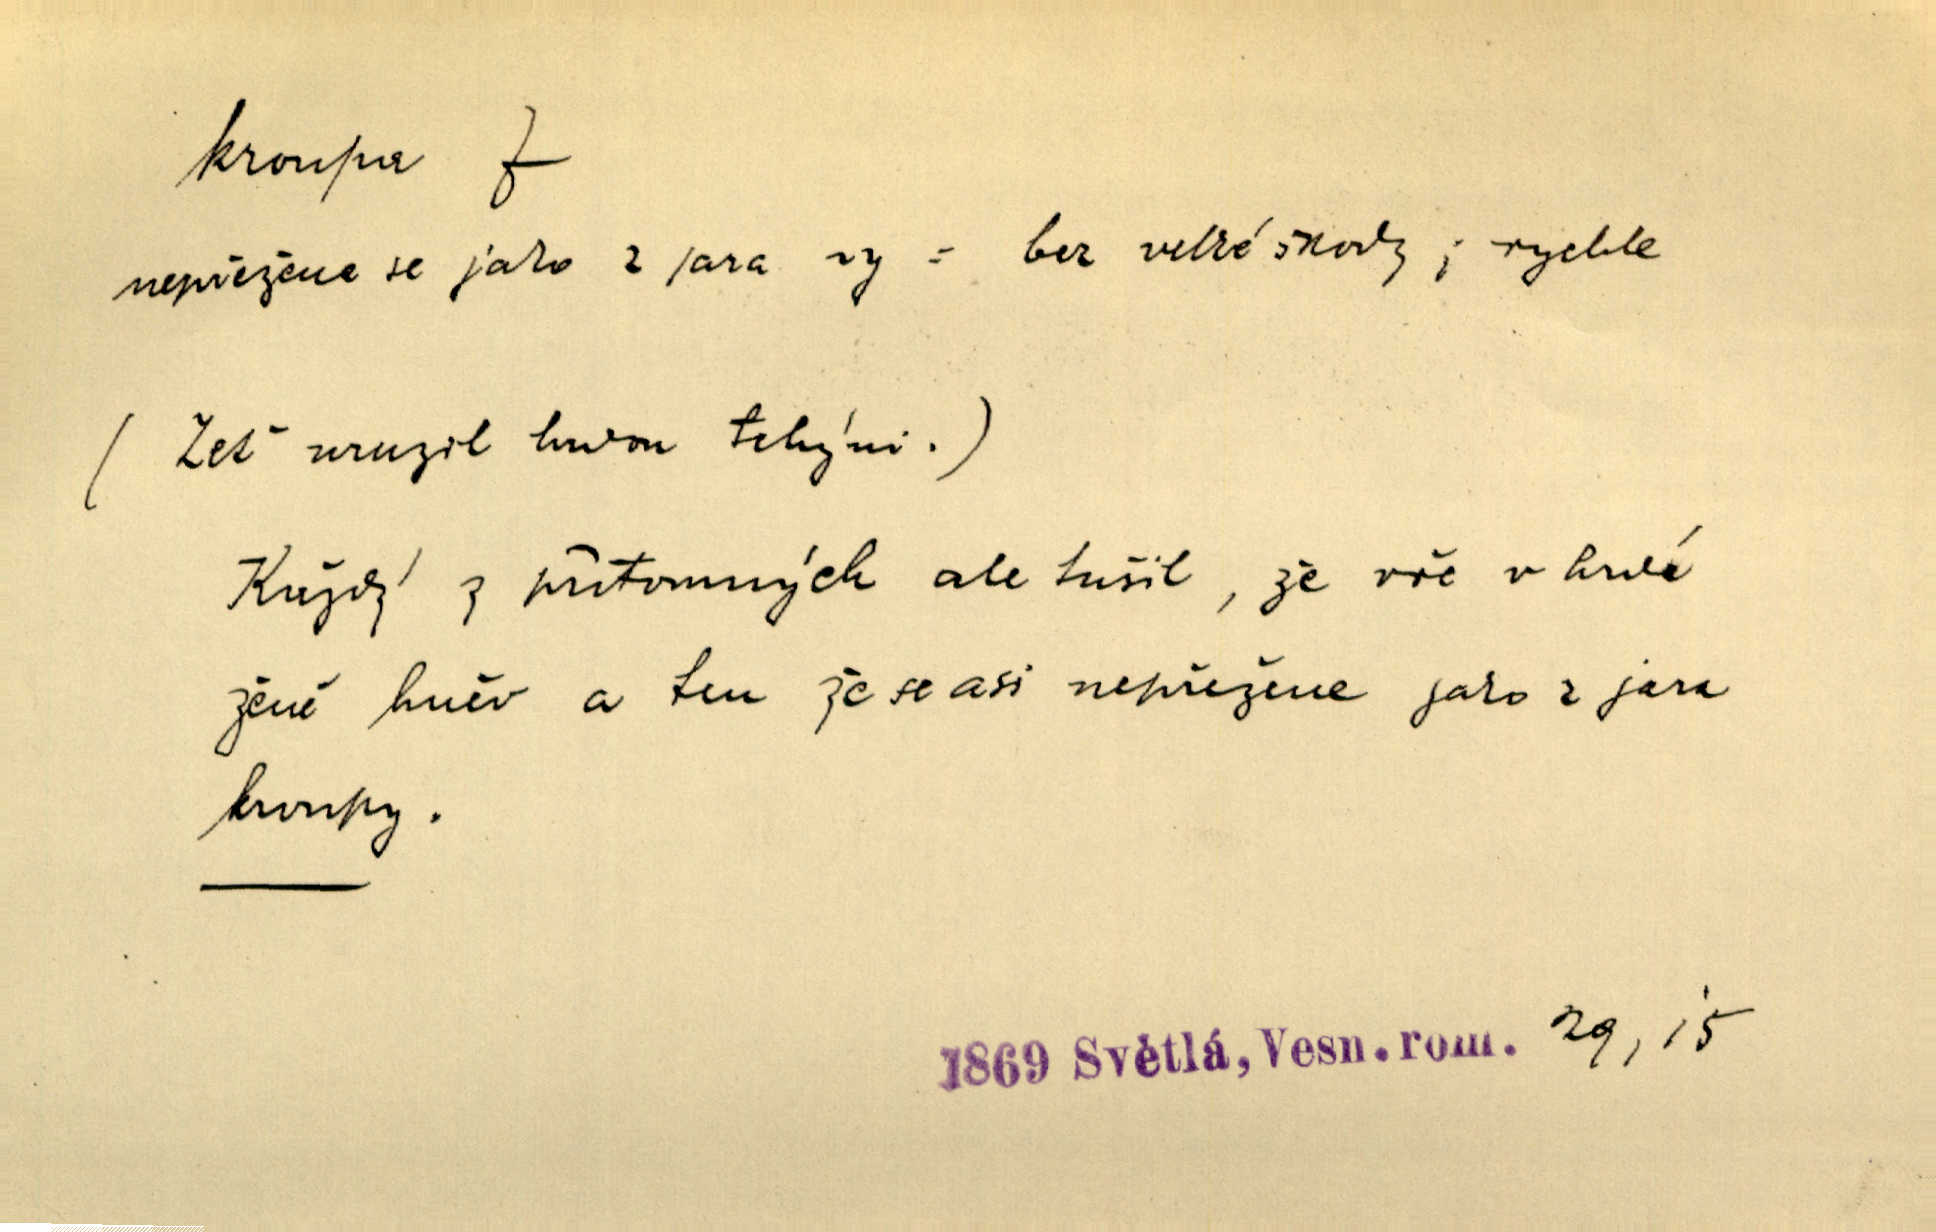 kroupa f
nepřežene se jako z jara ~y = bez velké škody; rychle
(Zeť urazil hrdou tchýni.)
Každý z přítomných ale tušil, že vře v hrdé
ženě hněv a ten že se asi nepřežene jako z jara
kroupy.
1869 Světlá, Vesn. rom. 29, 15